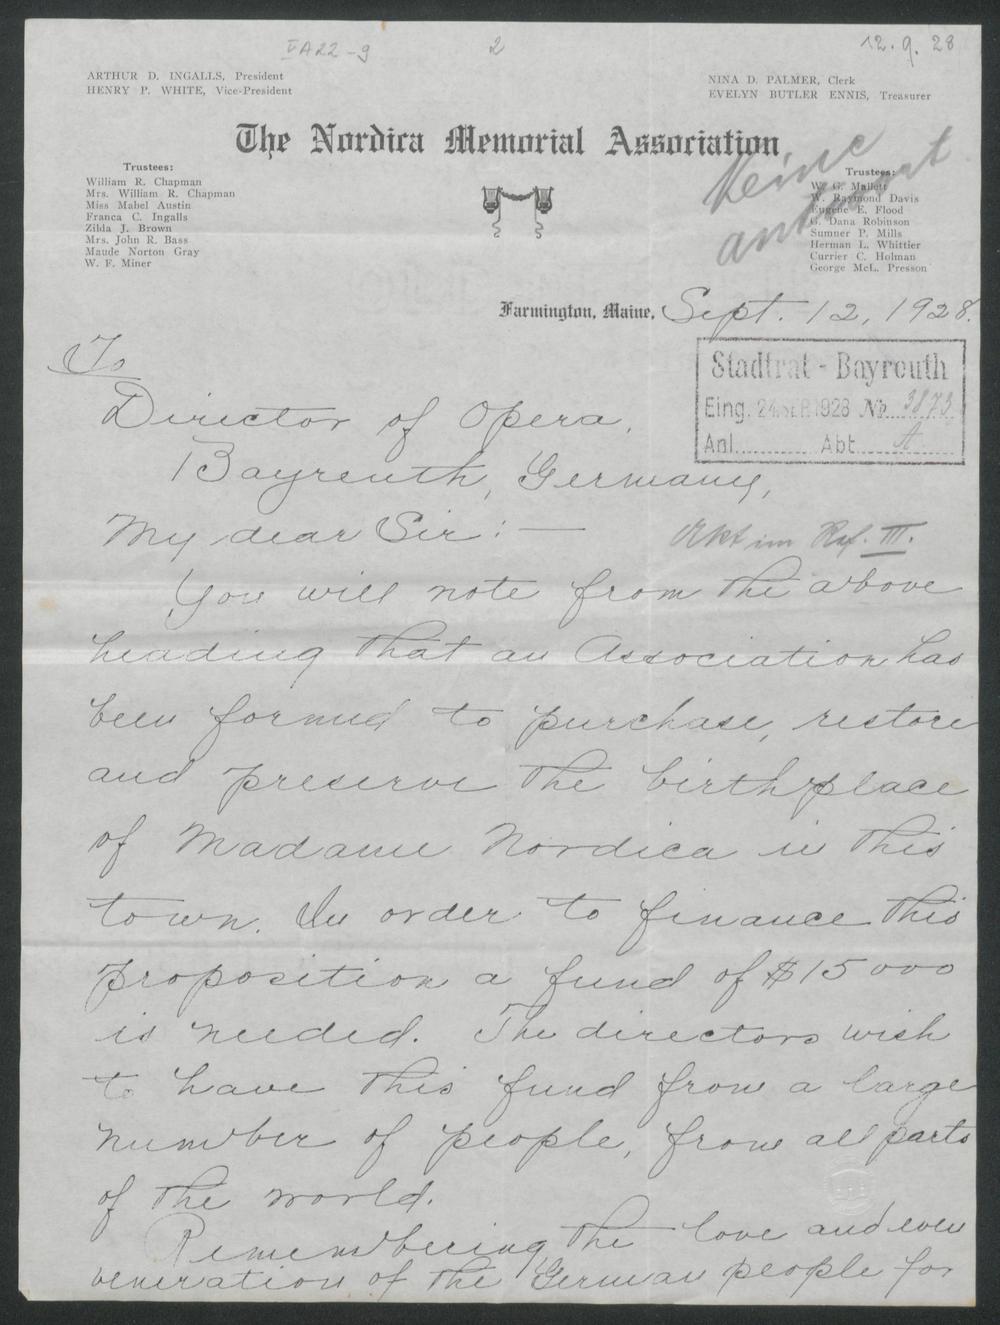 VA22-9
2
12.9.28
ARTHUR D. INGALLS, President
HENRY P. WHITE, Vice-President
NINA D. PALMER, Clerk
EVELYN BUTLER ENNIS, Treasurer
The Nordica Memorial Association
Keine
antwort
Trustees:
William R. Chapman
Mrs. William R. Chapman
Miss Mabel Austin
Franca C. Ingalls
Zilda J. Brown
Mrs. John R. Bass
Maude Norton Gray
W. F. Miner
Trustees:
W. G. Mallett
W. Raymond Davis
Eugene E. Flood
G. Dana Robinson
Sumner P. Mills
Herman L. Whittier
Currier C. Holman
George McL. Presson
Farmington, Maine, Sept. 12, 1928.
Stadtrat - Bayreuth
Eing. 24. SEP. 1928 No. 3873
Anl. Abt. A
To
Director of Opera,
Bayreuth, Germany,
My dear Sir: —
Akt im Ref. III.
You will note from the above
heading that an Association has
been formed to purchase, restore
and preserve the birthplace
of Madame Nordica in this
town. In order to finance this
proposition a fund of $15000
is needed. The directors wish
to have this fund from a large
number of people, from all parts
of the world.
Remembering the love and even
veneration of the German people for